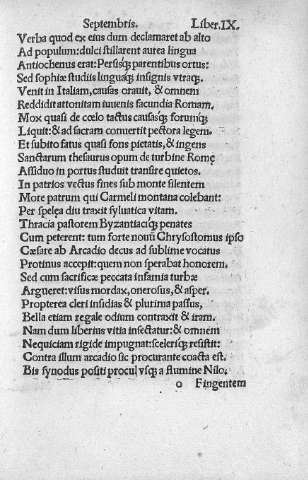 Septembris. Liber.IX.
Verba quod ex eius dum declamaret ab alto
Ad populum: dulci stillarent aurea lingua
Antiochenus erat: Persisq; parentibus ortus:
Sed sophiæ studiis linguaq; insignis vtraq;.
Venit in Italiam, causas orauit, & omnem
Reddidit attonitam iuuenis facundia Romam.
Mox quasi de cœlo tactus causasq; forumq;
Liquit: & ad sacram conuertit pectora legem.
Et subito fatus quasi fons pietatis, & ingens
Sanctarum thesaurus opum de turbine Romę
Assiduo in portus studuit transire quietos.
In patrios vectus fines sub monte silentem
More patrum qui Carmeli montana colebant:
Per spelęa diu traxit syluatica vitam.
Thracia pastorem Byzantiasq; penates
Cum peterent: tum forte nouũ Chrysostomus ipso
Cæsare ab Arcadio decus ad sublime vocatus
Protinus accepit: quem non sperabat honorem.
Sed cum sacrificæ peccata infamia turbæ
Argueret: visus mordax, onerosus, & asper.
Propterea cleri insidias & plurima passus,
Bella etiam regale odium contraxit & iram.
Nam dum liberius vitia insectatur: & omnem
Nequiciam rigide impugnat: scelerisq; resistit:
Contra illum arcadio sic procurante coacta est.
Bis synodus positi procul vsq; a flumine Nilo.
o Fingentem